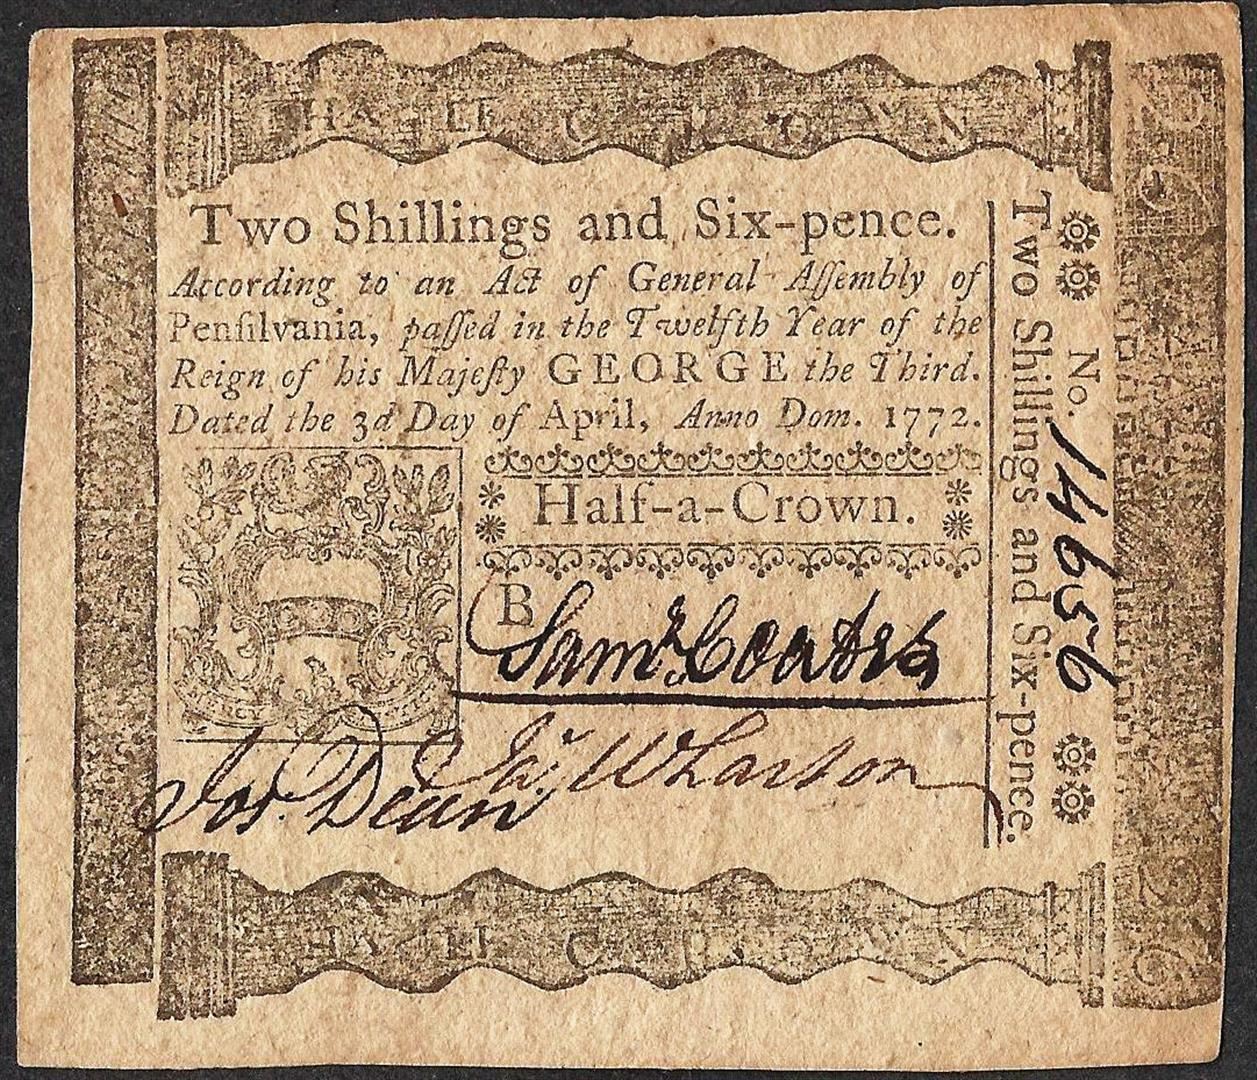 HALF CROWN
Two Shillings and Six-pence.
According to an Act of General Aſſembly of
Penſilvania, paſſed in the Twelfth Year of the
Reign of his Majeſty GEORGE the Third.
Dated the 3d Day of April, Anno Dom. 1772.
Half-a-Crown.
B
Saml. Coates
Jas. Wharton
Jos. Dean
No. 14656
Two Shillings and Six-pence.
HALF CROWN